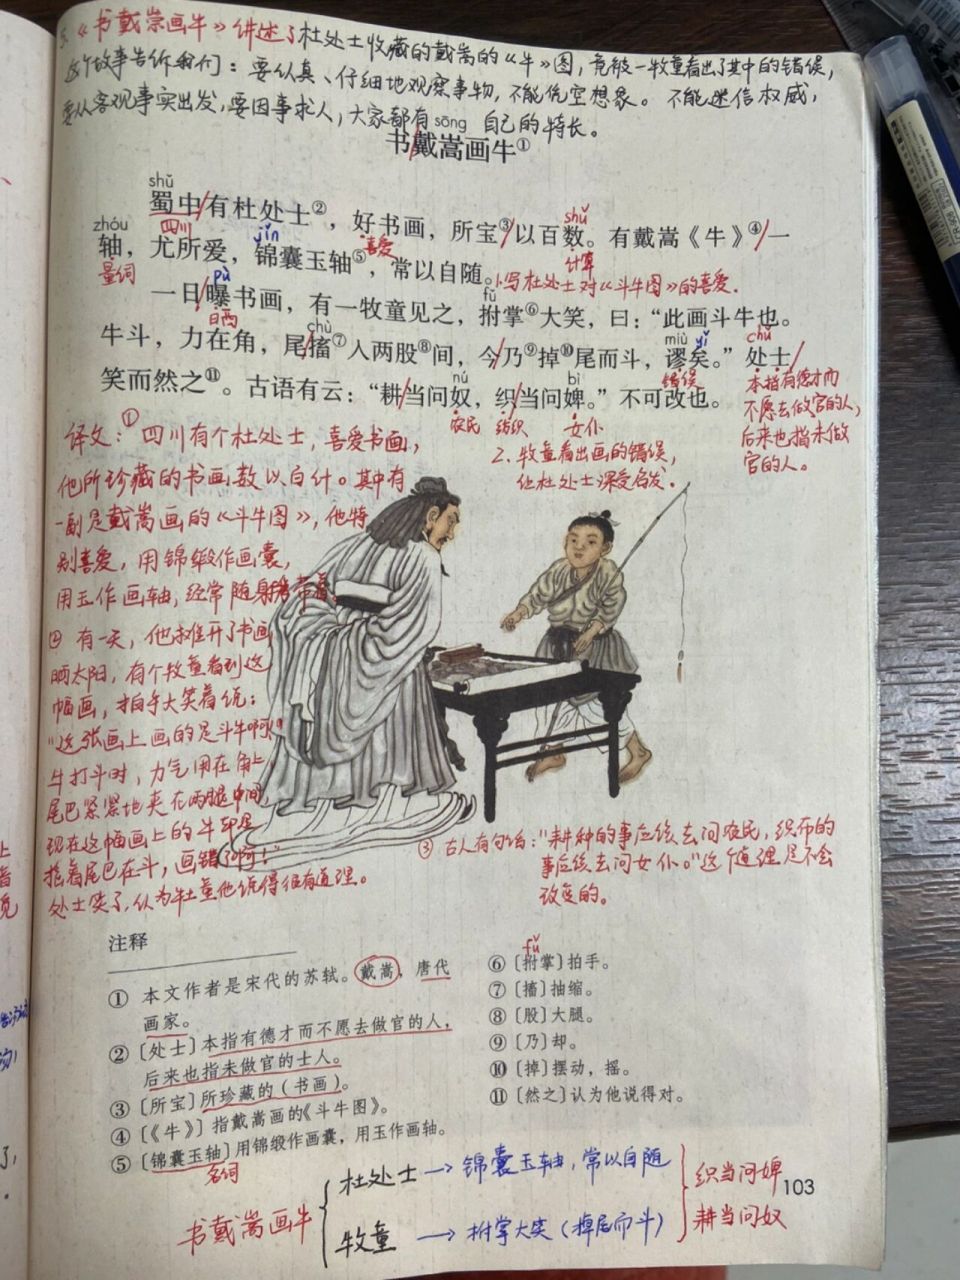 5.《书戴嵩画牛》讲述了杜处士收藏的戴嵩的《牛》图,竟被一牧童看出了其中的错误,
这个故事告诉我们:要认真、仔细地观察事物,不能凭空想象。不能迷信权威,
要从客观事实出发,要因事求人,大家都有自己的特长。
sōng
书戴嵩画牛①
shǔ
蜀中有杜处士②,好书画,所宝③以百数。有戴嵩《牛》④一
四川 喜爱 shǔ 计算
zhóu jǐn
轴,尤所爱,锦囊玉轴⑤,常以自随。
量词
1.写杜处士对《斗牛图》的喜爱.
pù fǔ
一日曝书画,有一牧童见之,拊掌⑥大笑,曰:“此画斗牛也。
日晒
chù miù yǐ chǔ
牛斗,力在角,尾搐⑦入两股⑧间,今乃⑨掉⑩尾而斗,谬矣。”处士
错误
nú bì
笑而然之⑪。古语有云:“耕当问奴,织当问婢。”不可改也。
农民 纺织 女仆
本指有德才而
不愿去做官的人,
后来也指未做
官的人。
2.牧童看出画的错误,
使杜处士深受启发.
译文:①四川有个杜处士,喜爱书画,
他所珍藏的书画数以百计。其中有
一副是戴嵩画的《斗牛图》,他特
别喜爱,用锦缎作画囊,
用玉作画轴,经常随身携带着。
② 有一天,他摊开了书画
晒太阳,有个牧童看到这
幅画,拍手大笑着说:
“这张画上画的是斗牛啊!
牛打斗时,力气用在角上,
尾巴紧紧地夹在两腿中间
现在这幅画上的牛却是
摇着尾巴在斗,画错了啊!”
处士笑了,认为牧童他说得很有道理。
③ 古人有句话:“耕种的事应该去问农民,织布的
事应该去问女仆。”这个道理是不会
改变的。
注释
① 本文作者是宋代的苏轼。戴嵩,唐代
画家。
②〔处士〕本指有德才而不愿去做官的人,
后来也指未做官的士人。
③〔所宝〕所珍藏的(书画)。
④〔《牛》〕指戴嵩画的《斗牛图》。
⑤〔锦囊玉轴〕用锦缎作画囊,用玉作画轴。
名词
fǔ
⑥〔拊掌〕拍手。
⑦〔搐〕抽缩。
⑧〔股〕大腿。
⑨〔乃〕却。
⑩〔掉〕摆动,摇。
⑪〔然之〕认为他说得对。
书戴嵩画牛
杜处士→锦囊玉轴,常以自随
牧童→拊掌大笑(掉尾而斗)
织当问婢
耕当问奴
103